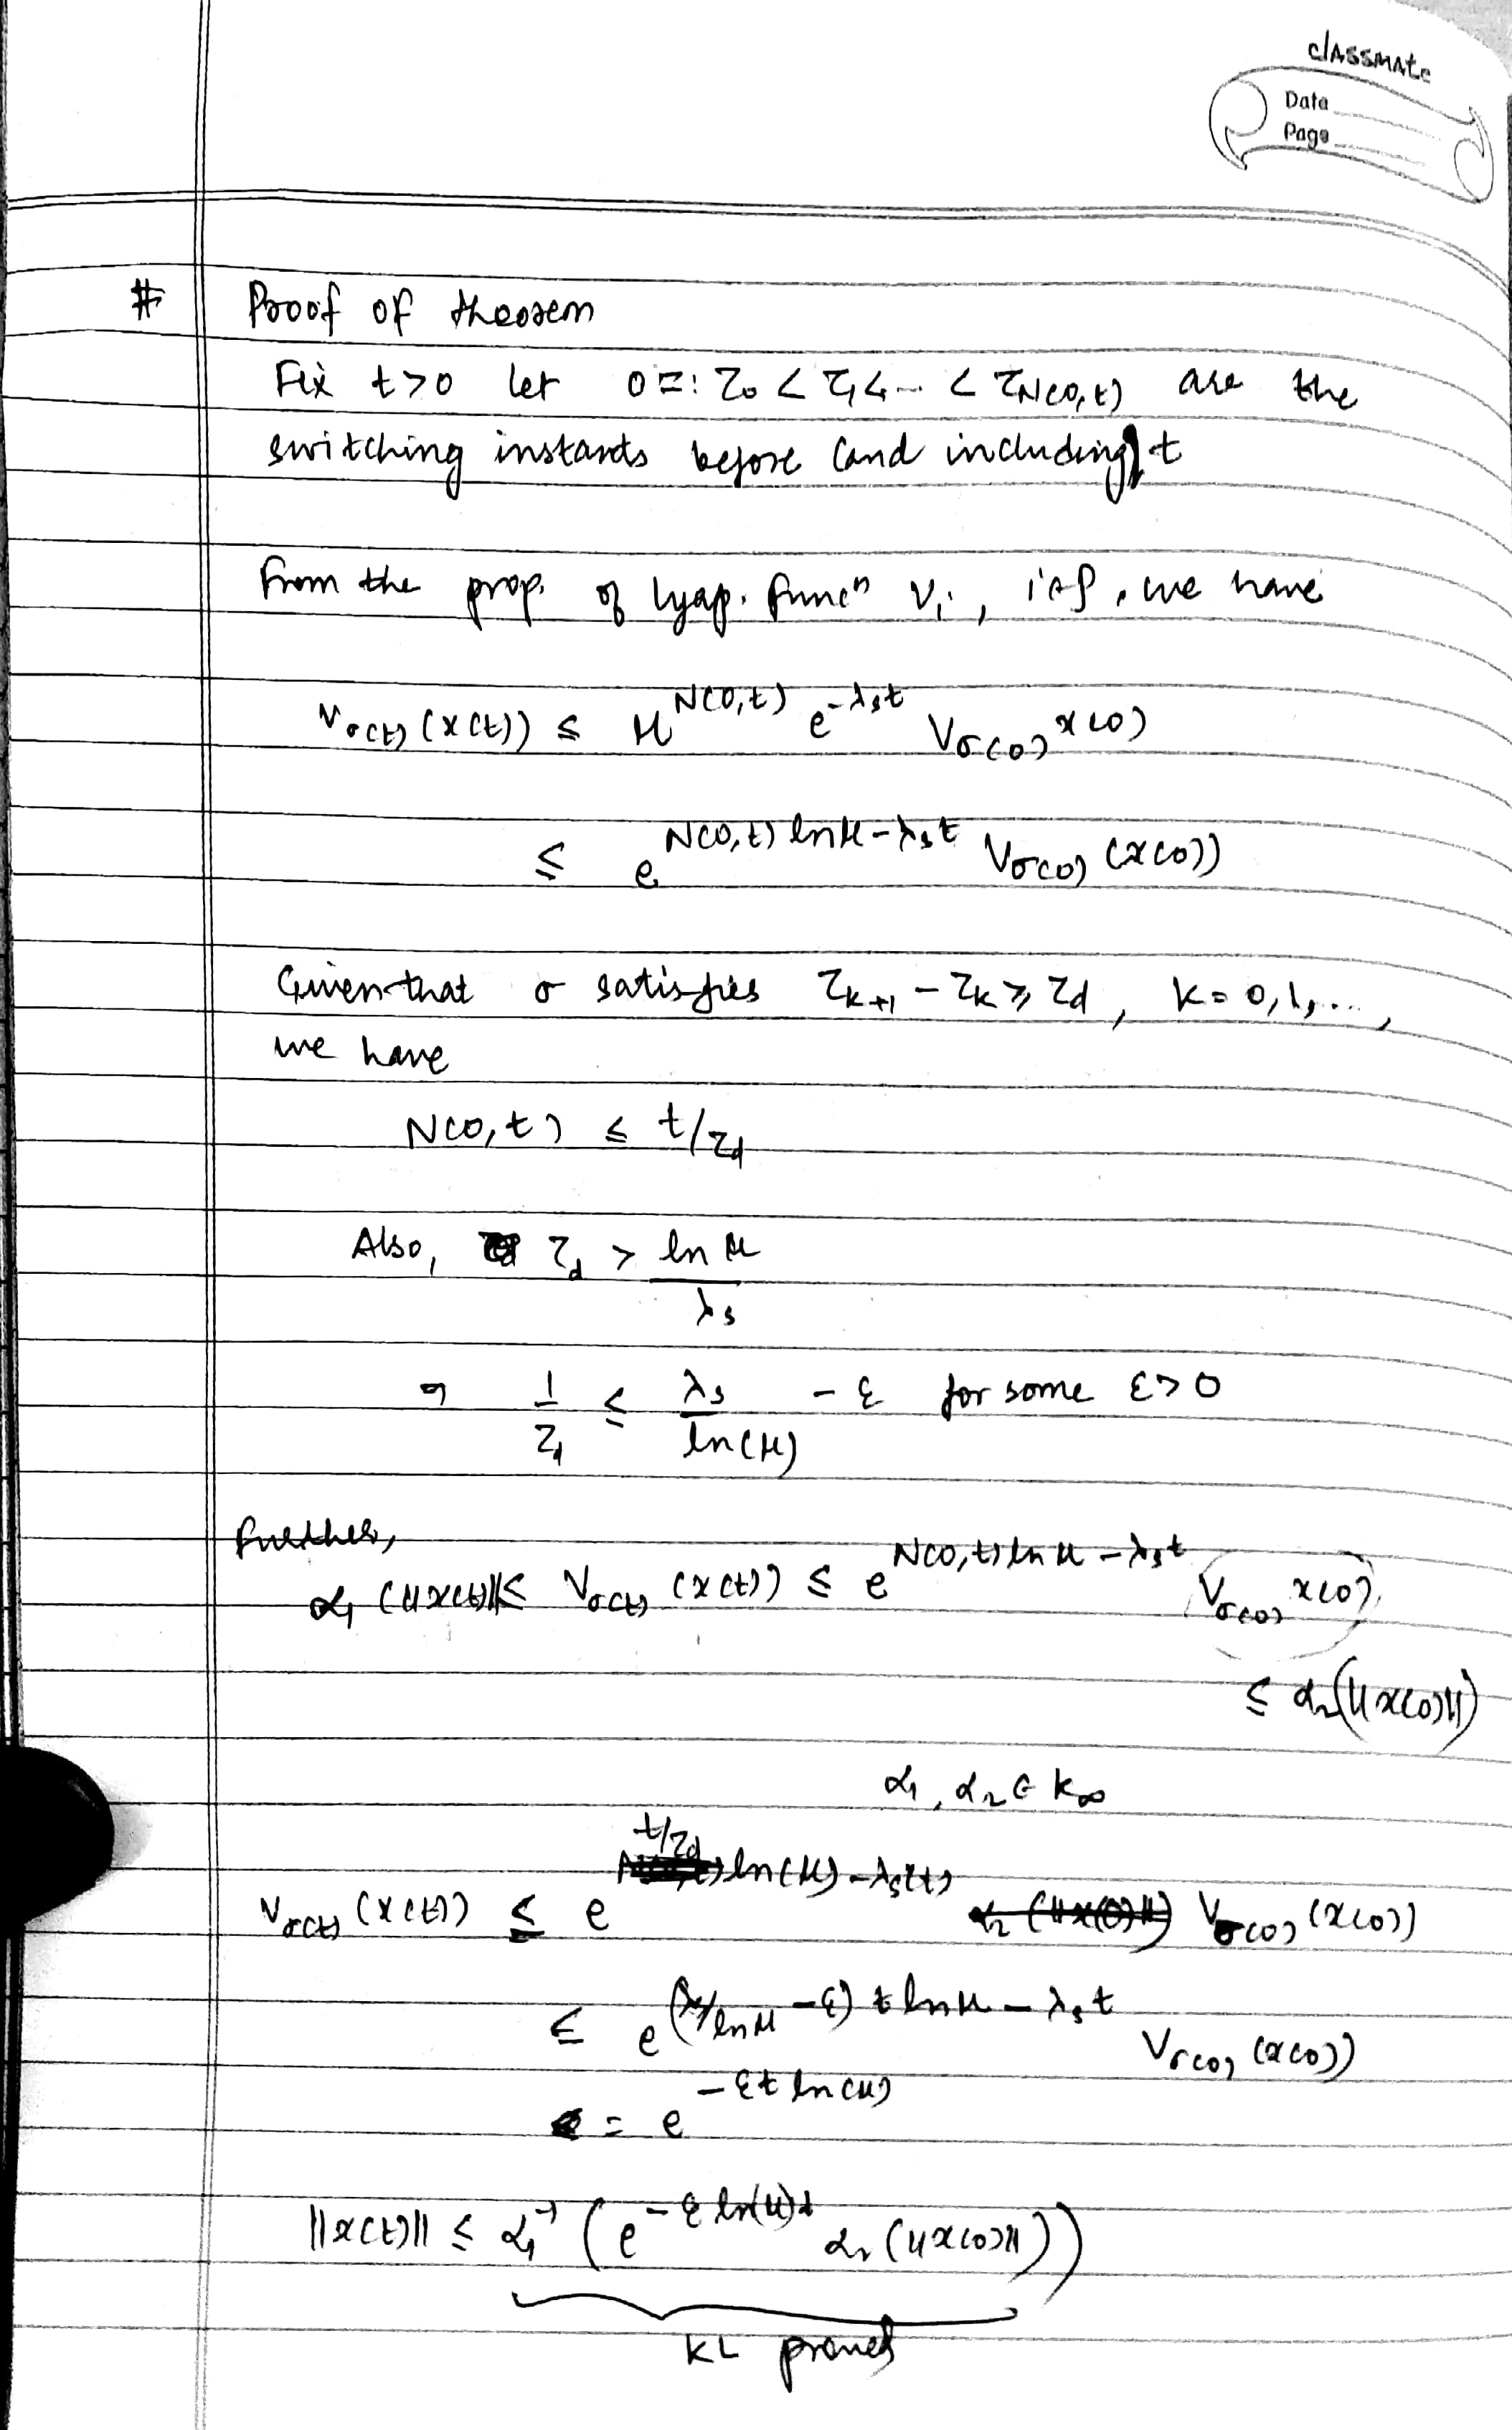 classmate
Date
Page
# Proof of theorem
Fix t>0 let 0=: τ₀ < τ₁<... < τ_N(0,t) are the
switching instants before (and including) t
From the prop. of lyap. funcⁿ Vᵢ, i∈P, we have
V_σ(t) (x(t)) ≤ μ^N(0,t) e^-λₛt V_σ(0) x(0)
≤ e^N(0,t) ln μ-λₛt V_σ(0) (x(0))
Given that σ satisfies τ_k+1 - τ_k ≥ τ_d, k=0,1,...,
we have
N(0,t) ≤ t/τ_d
Also, τ_d > ln μ / λₛ
⇒ 1/τ_d ≤ λₛ/ln(μ) - ε for some ε>0
further,
α₁ (||x(t)||≤ V_σ(t) (x(t)) ≤ e^N(0,t) ln μ - λₛt V_σ(0) x(0)
≤ α₂(||x(0)||)
α₁, α₂ ∈ K∞
V_σ(t) (x(t)) ≤ e^t/τ_d ln(μ)-λₛ(t) V_σ(0) (x(0))
≤ e^(λₛ/ln μ -ε) t ln μ - λₛt V_σ(0) (x(0))
= e^-εt ln(μ)
||x(t)|| ≤ α₁⁻¹ (e^-ε ln(μ)t α₂ (||x(0)||))
KL proved